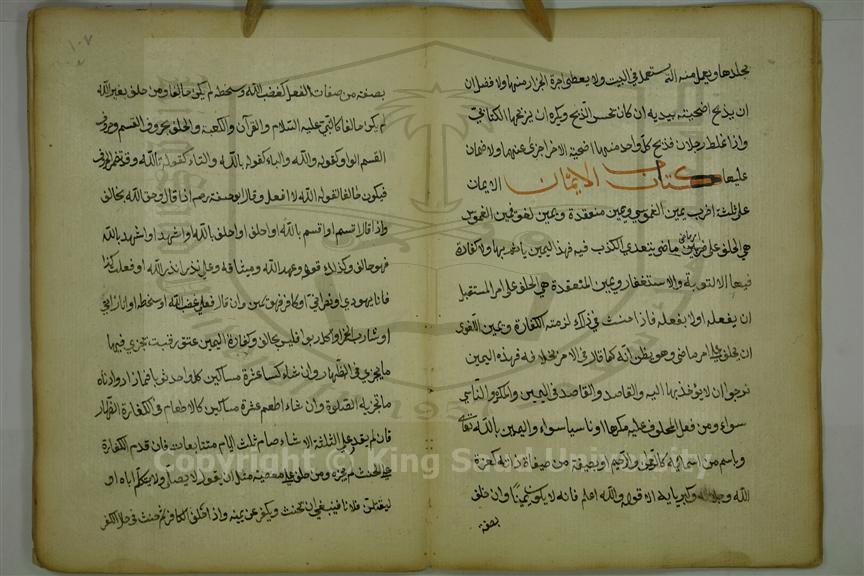 بجلدها ويعمل منه آلة يستعمل في البيت ولا يعطى اجرة الجزار منها والافضل ان
ان يذبح اضحيته بيديه ان كان يحسن الذبح ويكره ان يذبحها الكتابي
واذا غلط رجلان فذبح كل واحد منهما اضحية الاخر اجزى عنهما ولا ضمان
عليها كتاب الايمان الايمان
على ثلثة اضرب يمين الغموس ويمين منعقدة ويمين لغو فيمين الغموس
هي الحلف على امر ماضي يتعمد الكذب فيه فهذا اليمين ياثم بها ولا كفارة
فيها الا التوبة والاستغفار ويمين المنعقدة هي الحلف على امر المستقبل
ان يفعله او لا يفعله فاذا حنث في ذلك لزمته الكفارة ويمين اللغو
ان يحلف على امر ماضي وهو يظن انه كما قال والامر بخلافه فهذه اليمين
نرجوا ان لا يؤخذ بها اليه والقاصد في اليمين والمكره والناسي
سواء ومن فعل المحلوف عليه مكرها او ناسيا سواء واليمين بالله تعالى
وباسم من اسمائه كالرحمن والرحيم او بصفة من صفاة ذاته كعزة
الله وجلاله وكبريايه الا قوله والله اعلم فانه لا يكون يمينا وان حلف
بصفة
١٠٧
بصفته من صفات الفعل كغضب الله وسخطه لم يكن حالفا ومن حلف بغير الله
لم يكن حالفا كالنبي عليه السلام والقرآن والكعبه والحلف بحروف القسم وحروف
القسم الواو كقوله والله والباء كقوله بالله والتاء كقوله تالله وقد تضمر الحروف
فيكون حالفا كقوله الله لا افعل وقال ابو حنيفة رحم اذا قال وحق الله بحالف
واذا قال اقسم او اقسم بالله او احلف او احلف بالله او اشهد او اشهد بالله
فهو حالف وكذلك قوله وعهد الله وميثاقه وعلي نذر او نذر الله او فعلت كذا
فانا يهودي او نصراني او كافر فهو يمين وان قال فعلي غضب الله او سخطه او انا زاني
او شارب الخمر او آكل ربوا فليس بحالف وكفارة اليمين عتق رقبة يجزي فيها
ما يجزي في الظهار وان شاء كسا عشرة مساكين كل واحد ثوبا فما زاد وادناه
ما تجزيه الصلوة وان شاء اطعم عشرة مساكين كالاطعام في الكفارة الظهار
فان لم يقدر على الثلثة الاشياء صام ثلث ايام متتابعات فان قدم الكفارة
على الحنث لم يجزه ومن حلف على معصية مثل ان يقول لا يصلى ولا يتكلم اباه او
ليقتلن فلانا فينبغي ان يحنث ويكفر عن يمينه واذا حلف الكافر ثم حنث في حال الكفر
Copyright © King Saud University
1957